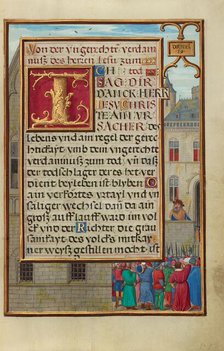 Von der vngerechtē verdam
nus des herren Jesu zum
tod
ICH
SAG DIR
DANCK HER
IESV CHRIS
TE AIN VR
SACHER DES
lebens vnd ain regel der gere
chtikayt vmb dein vngerecht
verdamnus zum tod vn̄ daß
der todschlager der es het ver
dient bey leben ist bliben O
ain verkörtes vrtayl vnd vn
saliger wechsel dan da ain
groß aufflauff ward im vol
ck vnd der Richter die grau
samkayt des volcks mit kay
ner weyß gestillen mocht ist